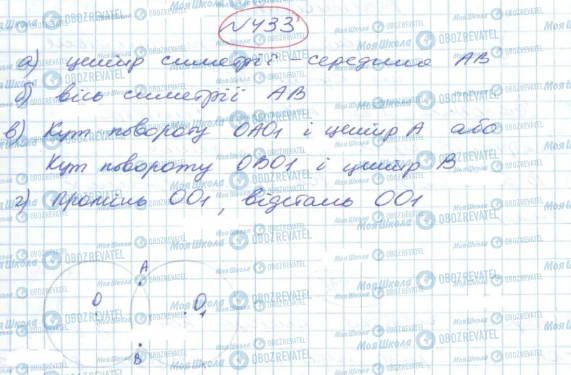 №433
а) центр симетрії середина АВ
б) вісь симетрії АВ
в) Кут повороту ОАО1 і центр А або
Кут повороту ОВО1 і центр В
г) Промінь ОО1, відстань ОО1
А
О
О1
В